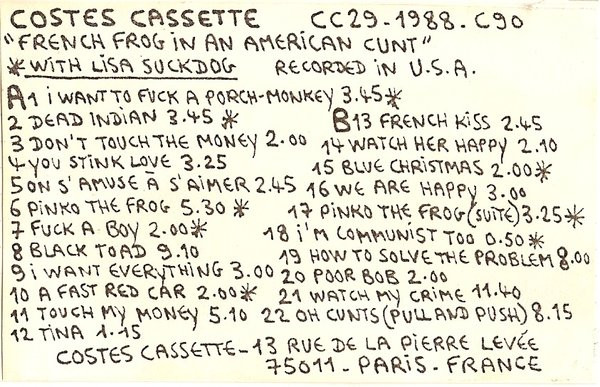 COSTES CASSETTE CC29-1988-C90
"FRENCH FROG IN AN AMERICAN CUNT"
*WITH LISA SUCKDOG RECORDED IN U.S.A.
A1 I WANT TO FUCK A PORCH-MONKEY 3.45*
2 DEAD INDIAN 3.45 *
3 DON'T TOUCH THE MONEY 2.00
4 YOU STINK LOVE 3.25
5 ON S'AMUSE À S'AIMER 2.45
6 PINKO THE FROG 5.30 *
7 FUCK A BOY 2.00*
8 BLACK TOAD 9.10
9 I WANT EVERYTHING 3.00
10 A FAST RED CAR 2.00*
11 TOUCH MY MONEY 5.10
12 TINA 1.15
B13 FRENCH KISS 2.45
14 WATCH HER HAPPY 2.10
15 BLUE CHRISTMAS 2.00*
16 WE ARE HAPPY 3.00
17 PINKO THE FROG (SUITE) 3.25*
18 I'M COMMUNIST TOO 0.50*
19 HOW TO SOLVE THE PROBLEM 8.00
20 POOR BOB 2.00
21 WATCH MY CRIME 11.40
22 OH CUNTS (PULL AND PUSH) 8.15
COSTES CASSETTE-13 RUE DE LA PIERRE LEVÉE
75011-PARIS-FRANCE